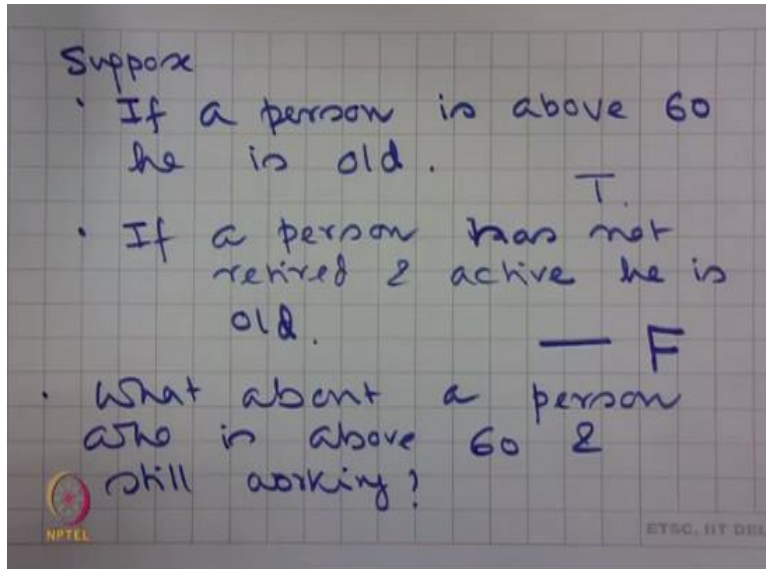 Suppose
· If a person is above 60
he is old.
T.
· If a person has not
retired & active he is
old.
— F
· What about a person
who is above 60 &
still working?
NPTEL
ETSC, IIT DEL